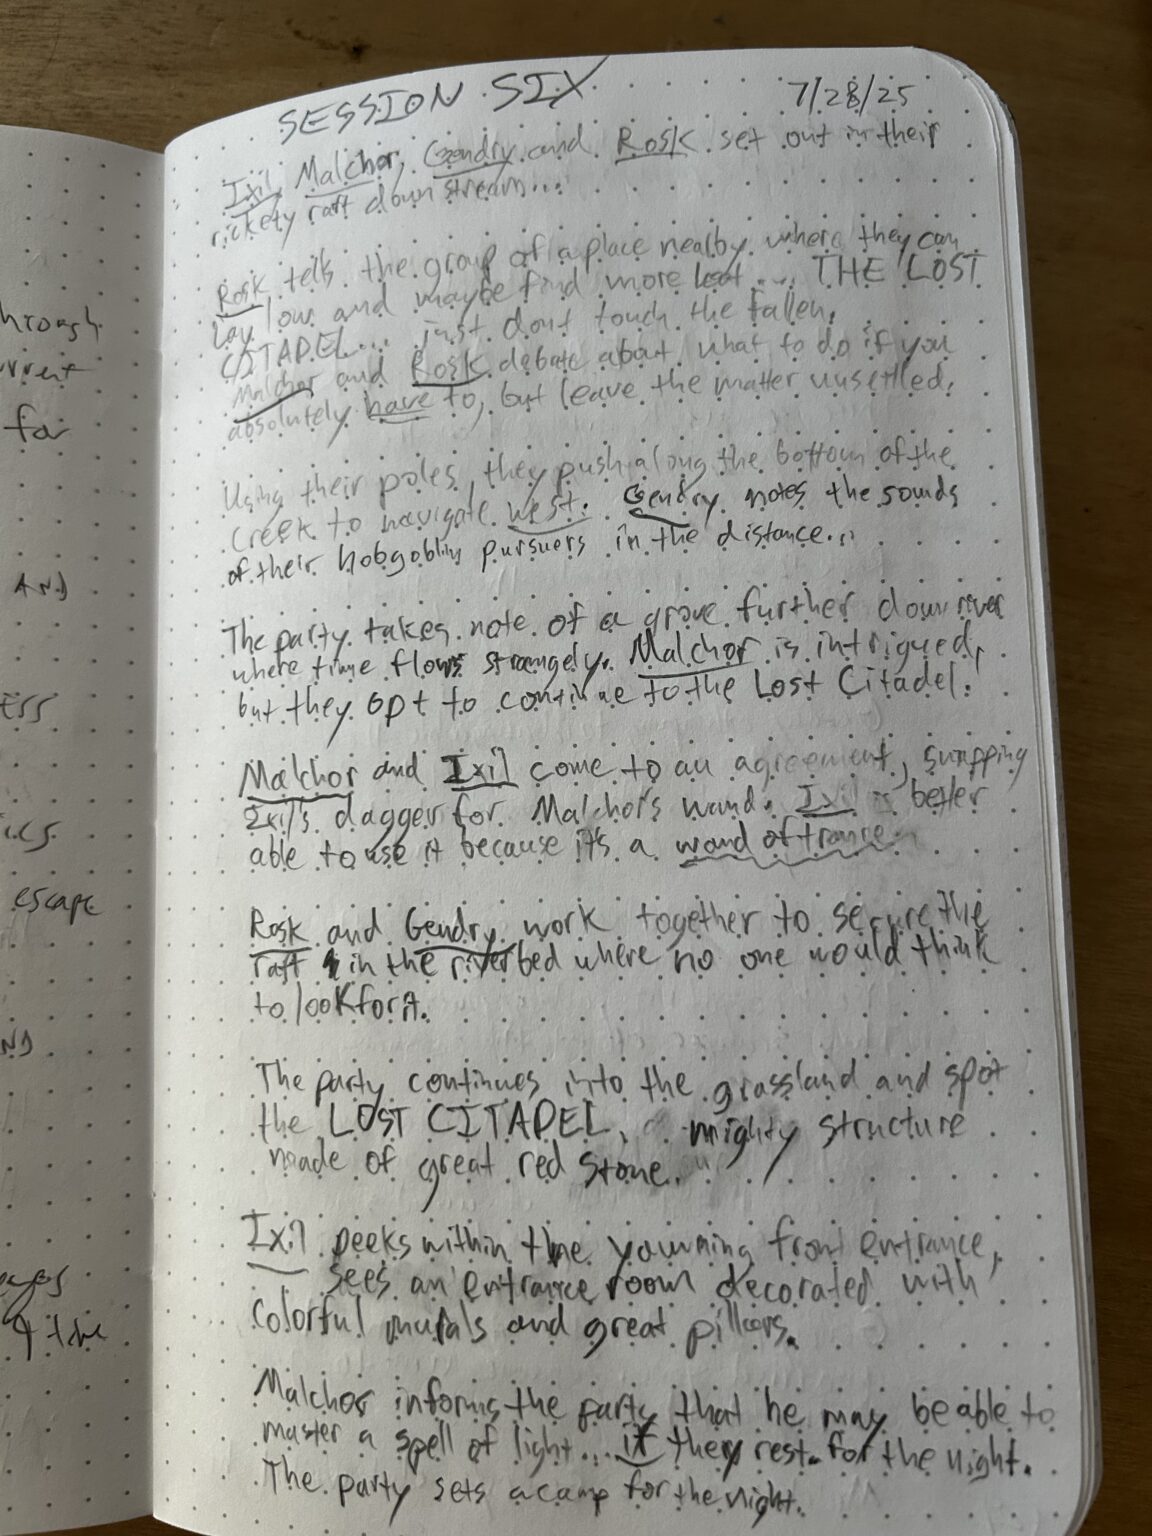 hrough
urrent
for
AND
ESS
ics
escape
ND
ages
& the
SESSION SIX 7/28/25
Ixil, Malchor, Gendry and Rosk set out in their
rickety raft down stream...
Rosk tells the group of a place nearby where they can
lay low and maybe find more loot... THE LOST
CITADEL... just dont touch the fallen.
Malchor and Rosk debate about what to do if you
absolutely have to, but leave the matter unsettled.
Using their poles, they push along the bottom of the
creek to navigate west. Gendry notes the sounds
of their hobgoblin pursuers in the distance...
The party takes note of a grove further down river
where time flows strangely. Malchor is intrigued,
but they opt to continue to the Lost Citadel.
Malchor and Ixil come to an agreement, swapping
Ixil's dagger for Malchor's wand. Ixil is better
able to use it because it's a wand of trance.
Rosk and Gendry work together to secure the
raft in the riverbed where no one would think
to look for it.
The party continues into the grassland and spot
the LOST CITADEL, a mighty structure
made of great red stone.
Ixil peeks within the yawning front entrance,
sees an entrance room decorated with
colorful murals and great pillars.
Malchor informs the party that he may be able to
master a spell of light... if they rest for the night.
The party sets a camp for the night.